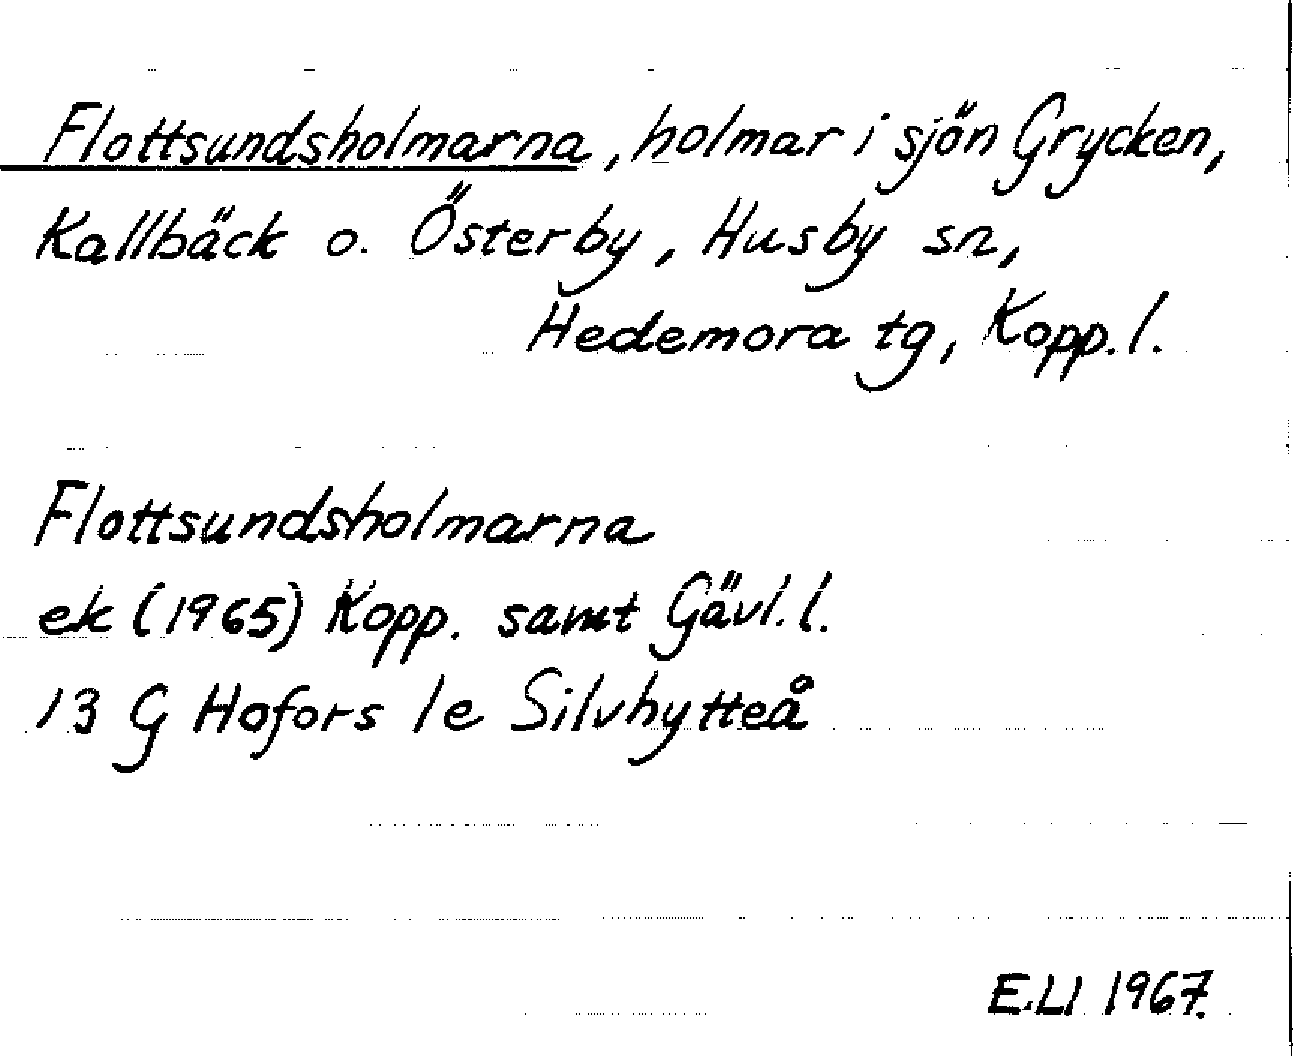 Flottsundsholmarna, holmar i sjön Grycken,
Kallbäck o. Österby, Husby sn,
Hedemora tg, Kopp.l.
Flottsundsholmarna
ek (1965) Kopp. samt Gävl.l.
13 G Hofors 1e Silvhytteå
E.Ll 1967.